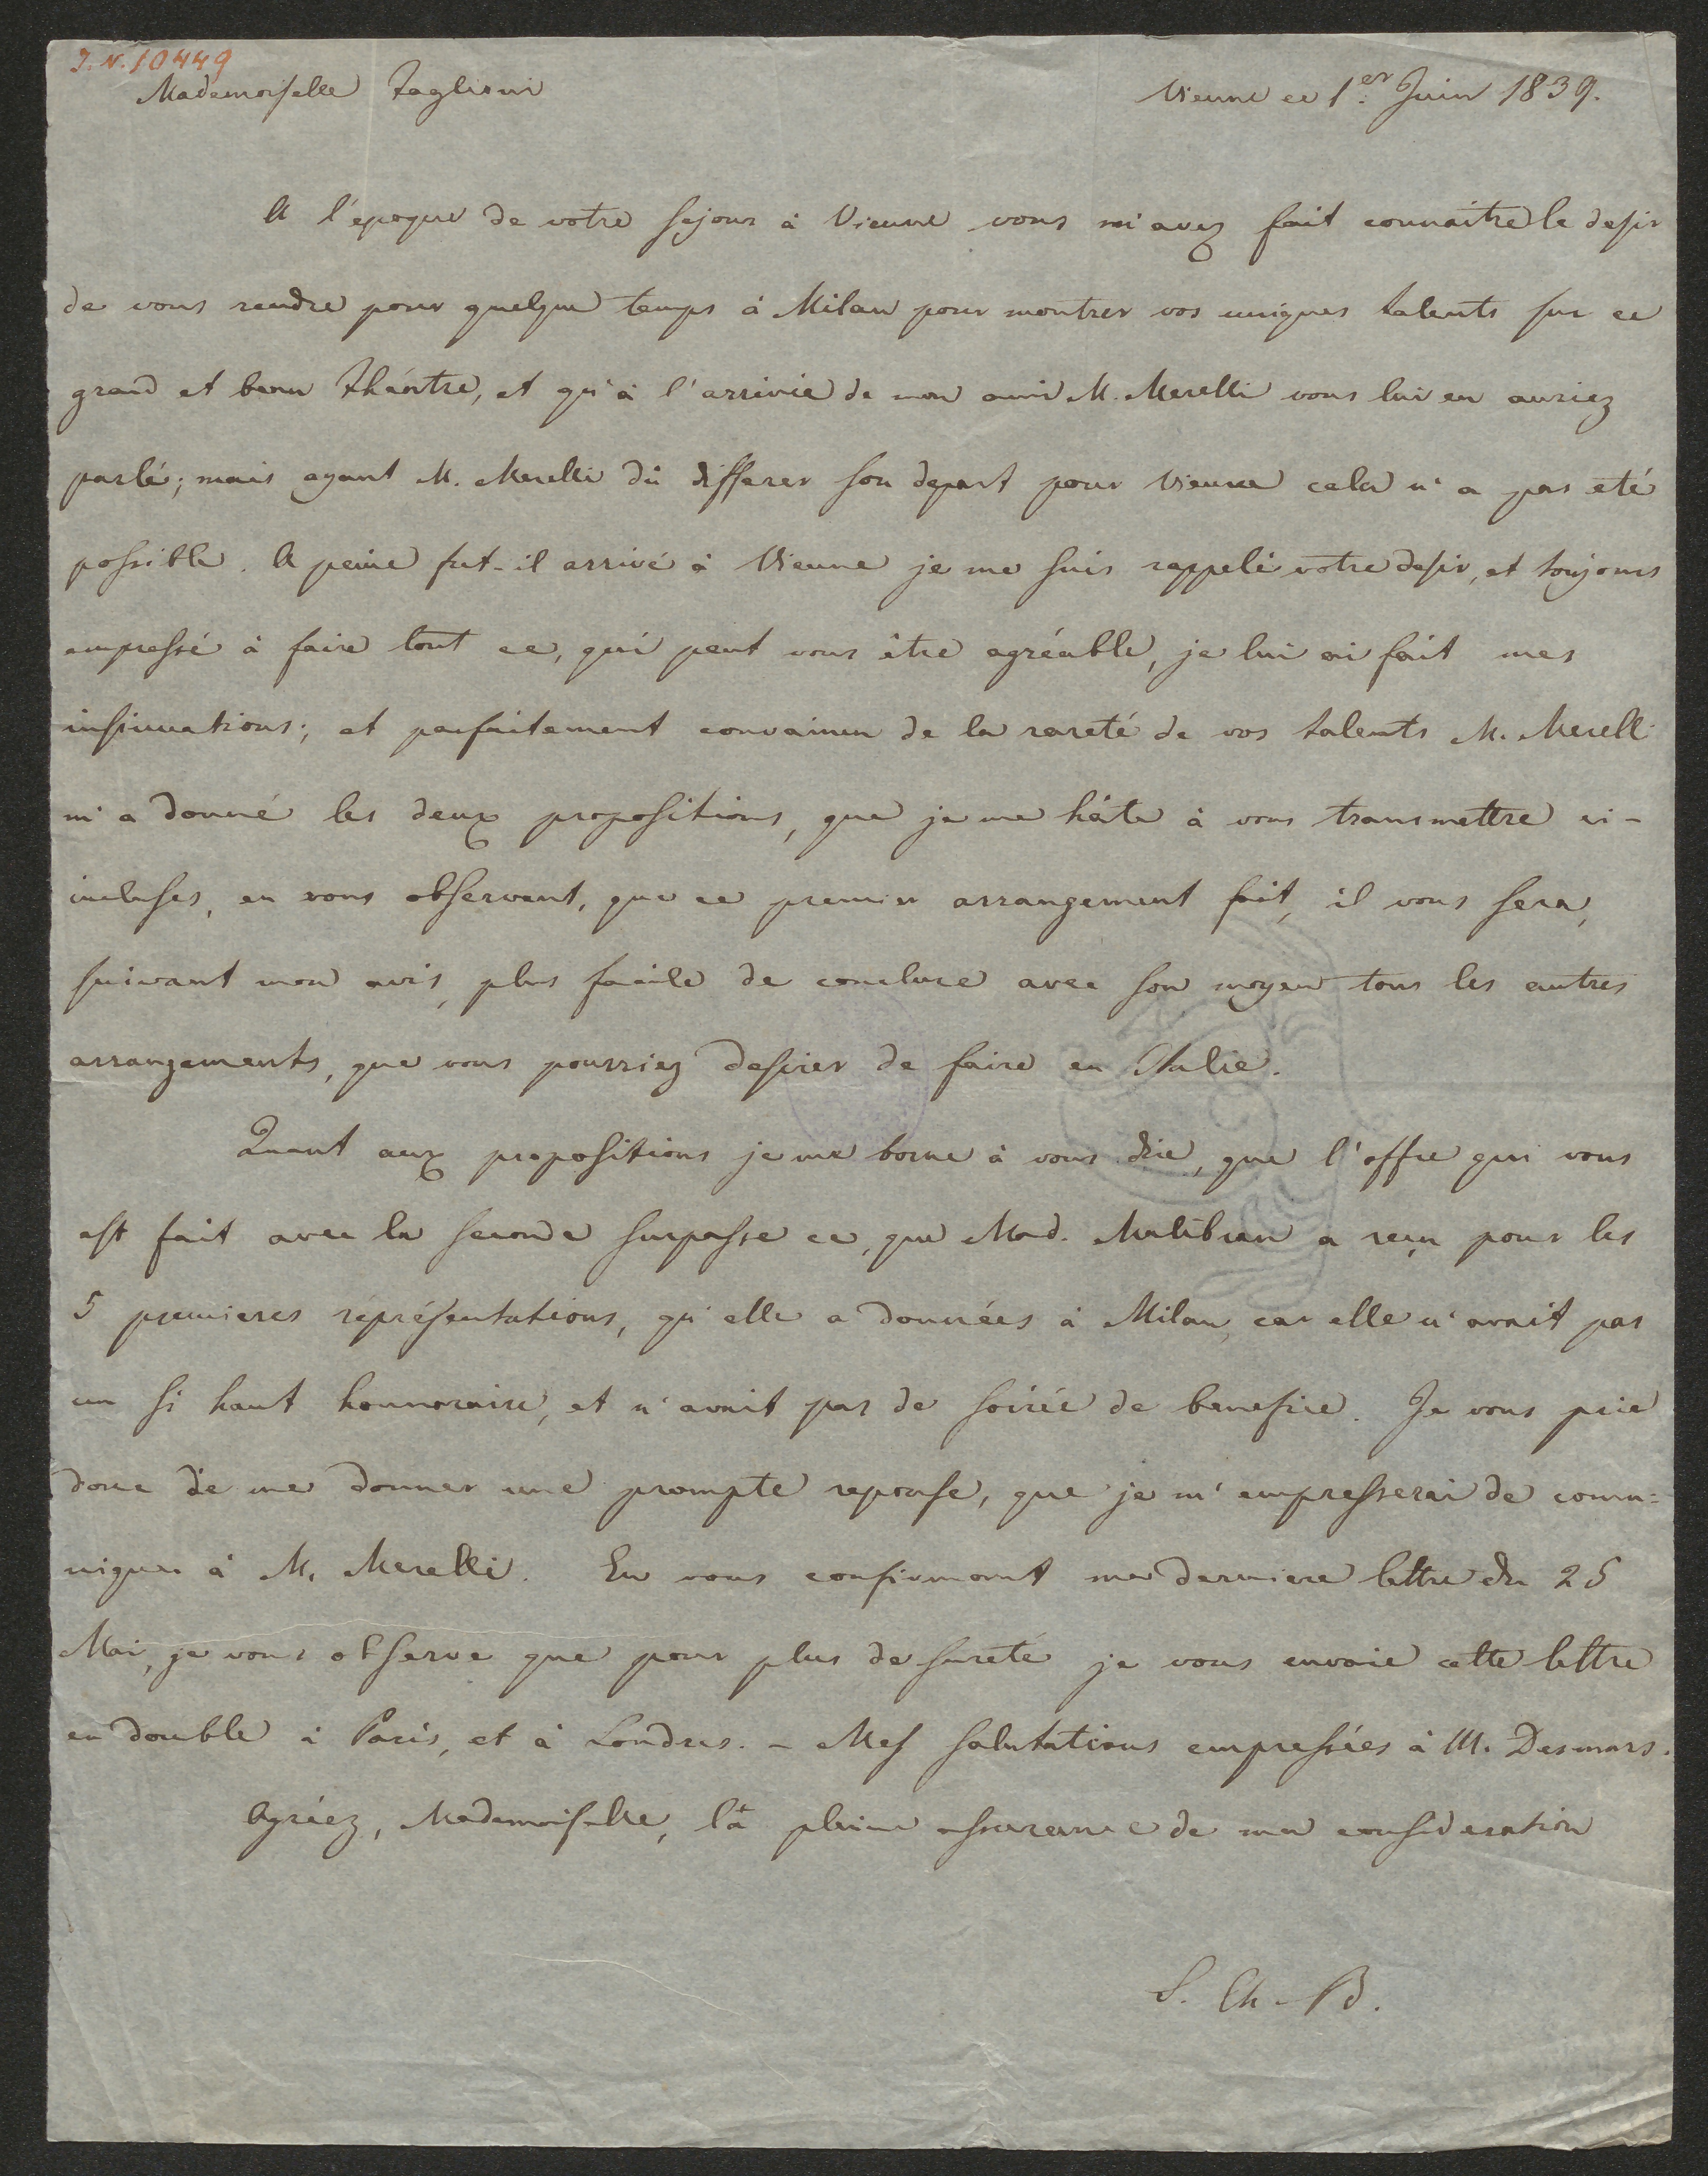 I.N. 10449
Mademoiselle Taglioni
Vienne ce 1er Juin 1839.
A l'epoque de votre sejour à Vienne vous m'avez fait connaître le desir
de vous rendre pour quelque temps à Milan pour montrer vos uniques talents sur ce
grand et beau théatre, et qu'à l'arrivée de mon ami M. Merelli vous lui en auriez
parlé; mais ayant M. Merelli dû differer son depart pour Vienne cela n'a pas eté
possible. A peine fut-il arrivé à Vienne je me suis rappelé votre desir, et toujours
empressé à faire tout ce, qui peut vous être agréable, je lui ai fait mes
insinuations; et parfaitement convaincu de la rareté de vos talents M. Merelli
m'a donné les deux propositions, que je me hâte à vous transmettre ci-
incluses, en vous observant, que ce premier arrangement fait, il vous sera,
suivant mon avis, plus facile de conclure avec son moyen tous les autres
arrangements, que vous pourriez desirer de faire en Italie.
Quant aux propositions je me borne à vous dire, que l'offre qui vous
est fait avec la seconde surpasse ce, que Mad. Malibran a reçu pour les
5 premieres représentations, qu'elle a données à Milan, car elle n'avait pas
un si haut honnoraire, et n'avait pas de soirée de benefice. Je vous prie
donc de me donner une prompte reponse, que je m'empresserai de commu-
niquer à M. Merelli. En vous confirmant ma derniere lettre du 25
Mai, je vous observe que pour plus de sureté je vous envoie cette lettre
en double à Paris, et à Londres. - Mes salutations empressées à M. Desmars.
Agréez, Mademoiselle, la pleine assurance de ma consideration
S. Ch. B.